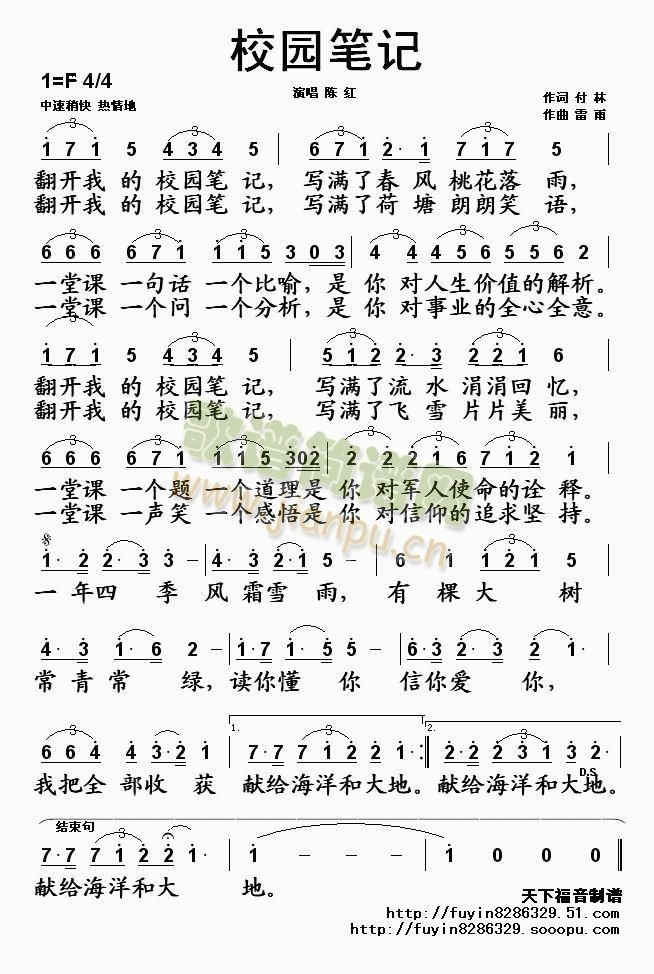 校园笔记
1=F 4/4
中速稍快 热情地
演唱 陈 红
作词 付 林
作曲 雷 雨
1 7 1 5 4 3 4 5 | 6 7 1 2· 1 7 1 7 5
翻开我 的 校园笔 记，写满了春 风 桃花落 雨，
翻开我 的 校园笔 记，写满了荷 塘 朗朗笑 语，
6 6 6 6 7 1 1 1 5 3 0 3 | 4 4 4 5 6 5 5 6 2
一堂课 一句话 一个比喻，是 你 对人生价值的解析。
一堂课 一个问 一个分析，是 你 对事业的全心全意。
1 7 1 5 4 3 4 5 | 5 1 2 2· 3 2 1 2 6
翻开我 的 校园笔 记， 写满了流 水 涓涓回 忆，
翻开我 的 校园笔 记， 写满了飞 雪 片片美 丽，
6 6 6 6 7 1 1 1 5 3 0 2 | 2 2 2 1 6 7 1 2 1
一堂课 一个题 一个道理是 你 对军人使命的诠 释。
一堂课 一声笑 一个感悟是 你 对信仰的追求坚 持。
1· 2 2· 3 | 4· 3 2· 5 | 6 1 1 2 1 5
一 年四 季 风 霜雪 雨， 有 棵 大 树
4· 3 1· 6 2 - | 1· 7 1· 5 5 - | 6· 3 2 3 2 1· |
常 青 常 绿，读你懂 你 信你爱 你，
6 6 4 4 3· 2 1 | 1. 7· 7 7 1 2 2 1 :| 2. 2· 2 2 3 1 3 2· |
D.S
我把全 部收 获 献给海洋和大地。献给海洋和大地。
结束句
7· 7 7 1 2 2 1· | 1 - - - | 1 0 0 0 ‖
献给海洋和大 地。
天下福音制谱
http://fuyin8286329.51.com
http://fuyin8286329.sooopu.com
歌谱简谱网
www.jianpu.cn